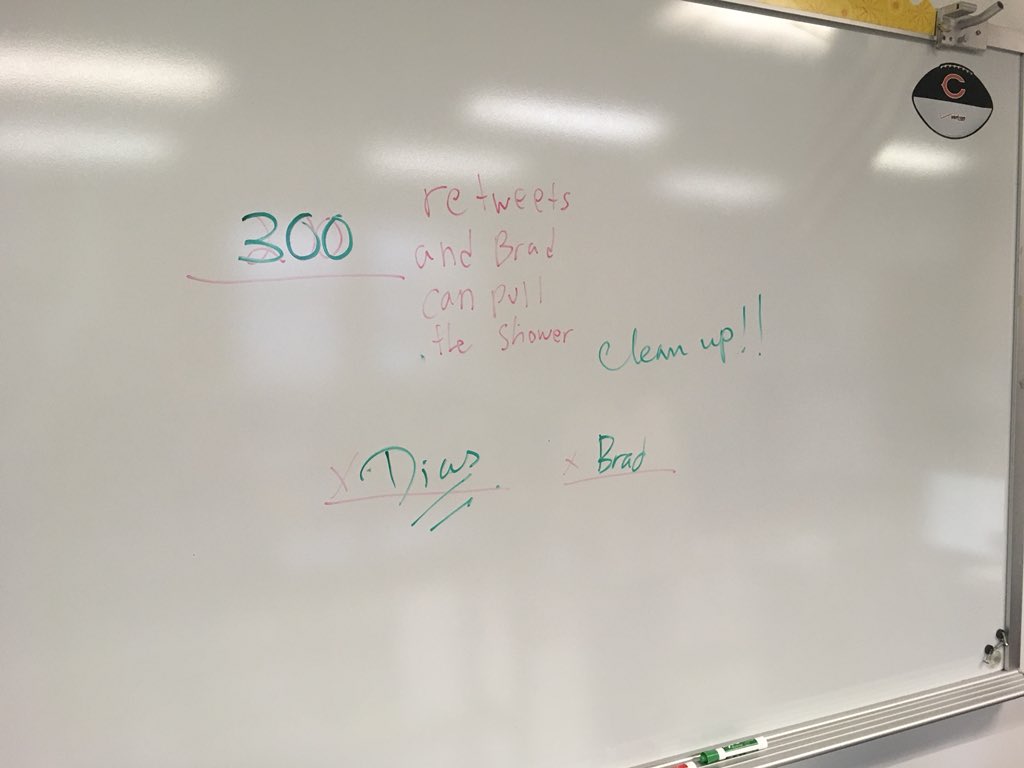 300 retweets
and Brad
can pull
the Shower
clean up!!
x Dias
x Brad
C